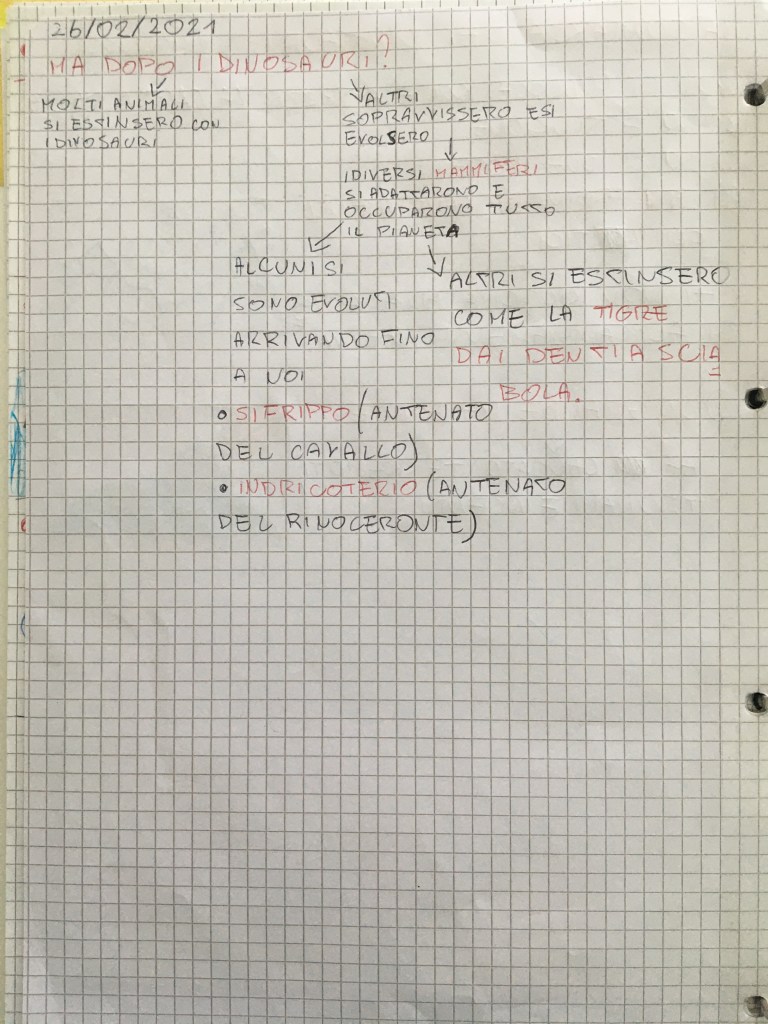 26/02/2021
MA DOPO I DINOSAURI?
MOLTI ANIMALI
SI ESTINSERO CON
I DINOSAURI
ALTRI
SOPRAVVISSERO E SI
EVOLSERO
I DIVERSI MAMMIFERI
SI ADATTARONO E
OCCUPARONO TUTTO
IL PIANETA
ALCUNI SI
SONO EVOLUTI
ARRIVANDO FINO
A NOI
• SIFRIPPO (ANTENATO
DEL CAVALLO)
• INDRICOTERIO (ANTENATO
DEL RINOCERONTE)
ALTRI SI ESTINSERO
COME LA TIGRE
DAI DENTI A SCIA=
BOLA.